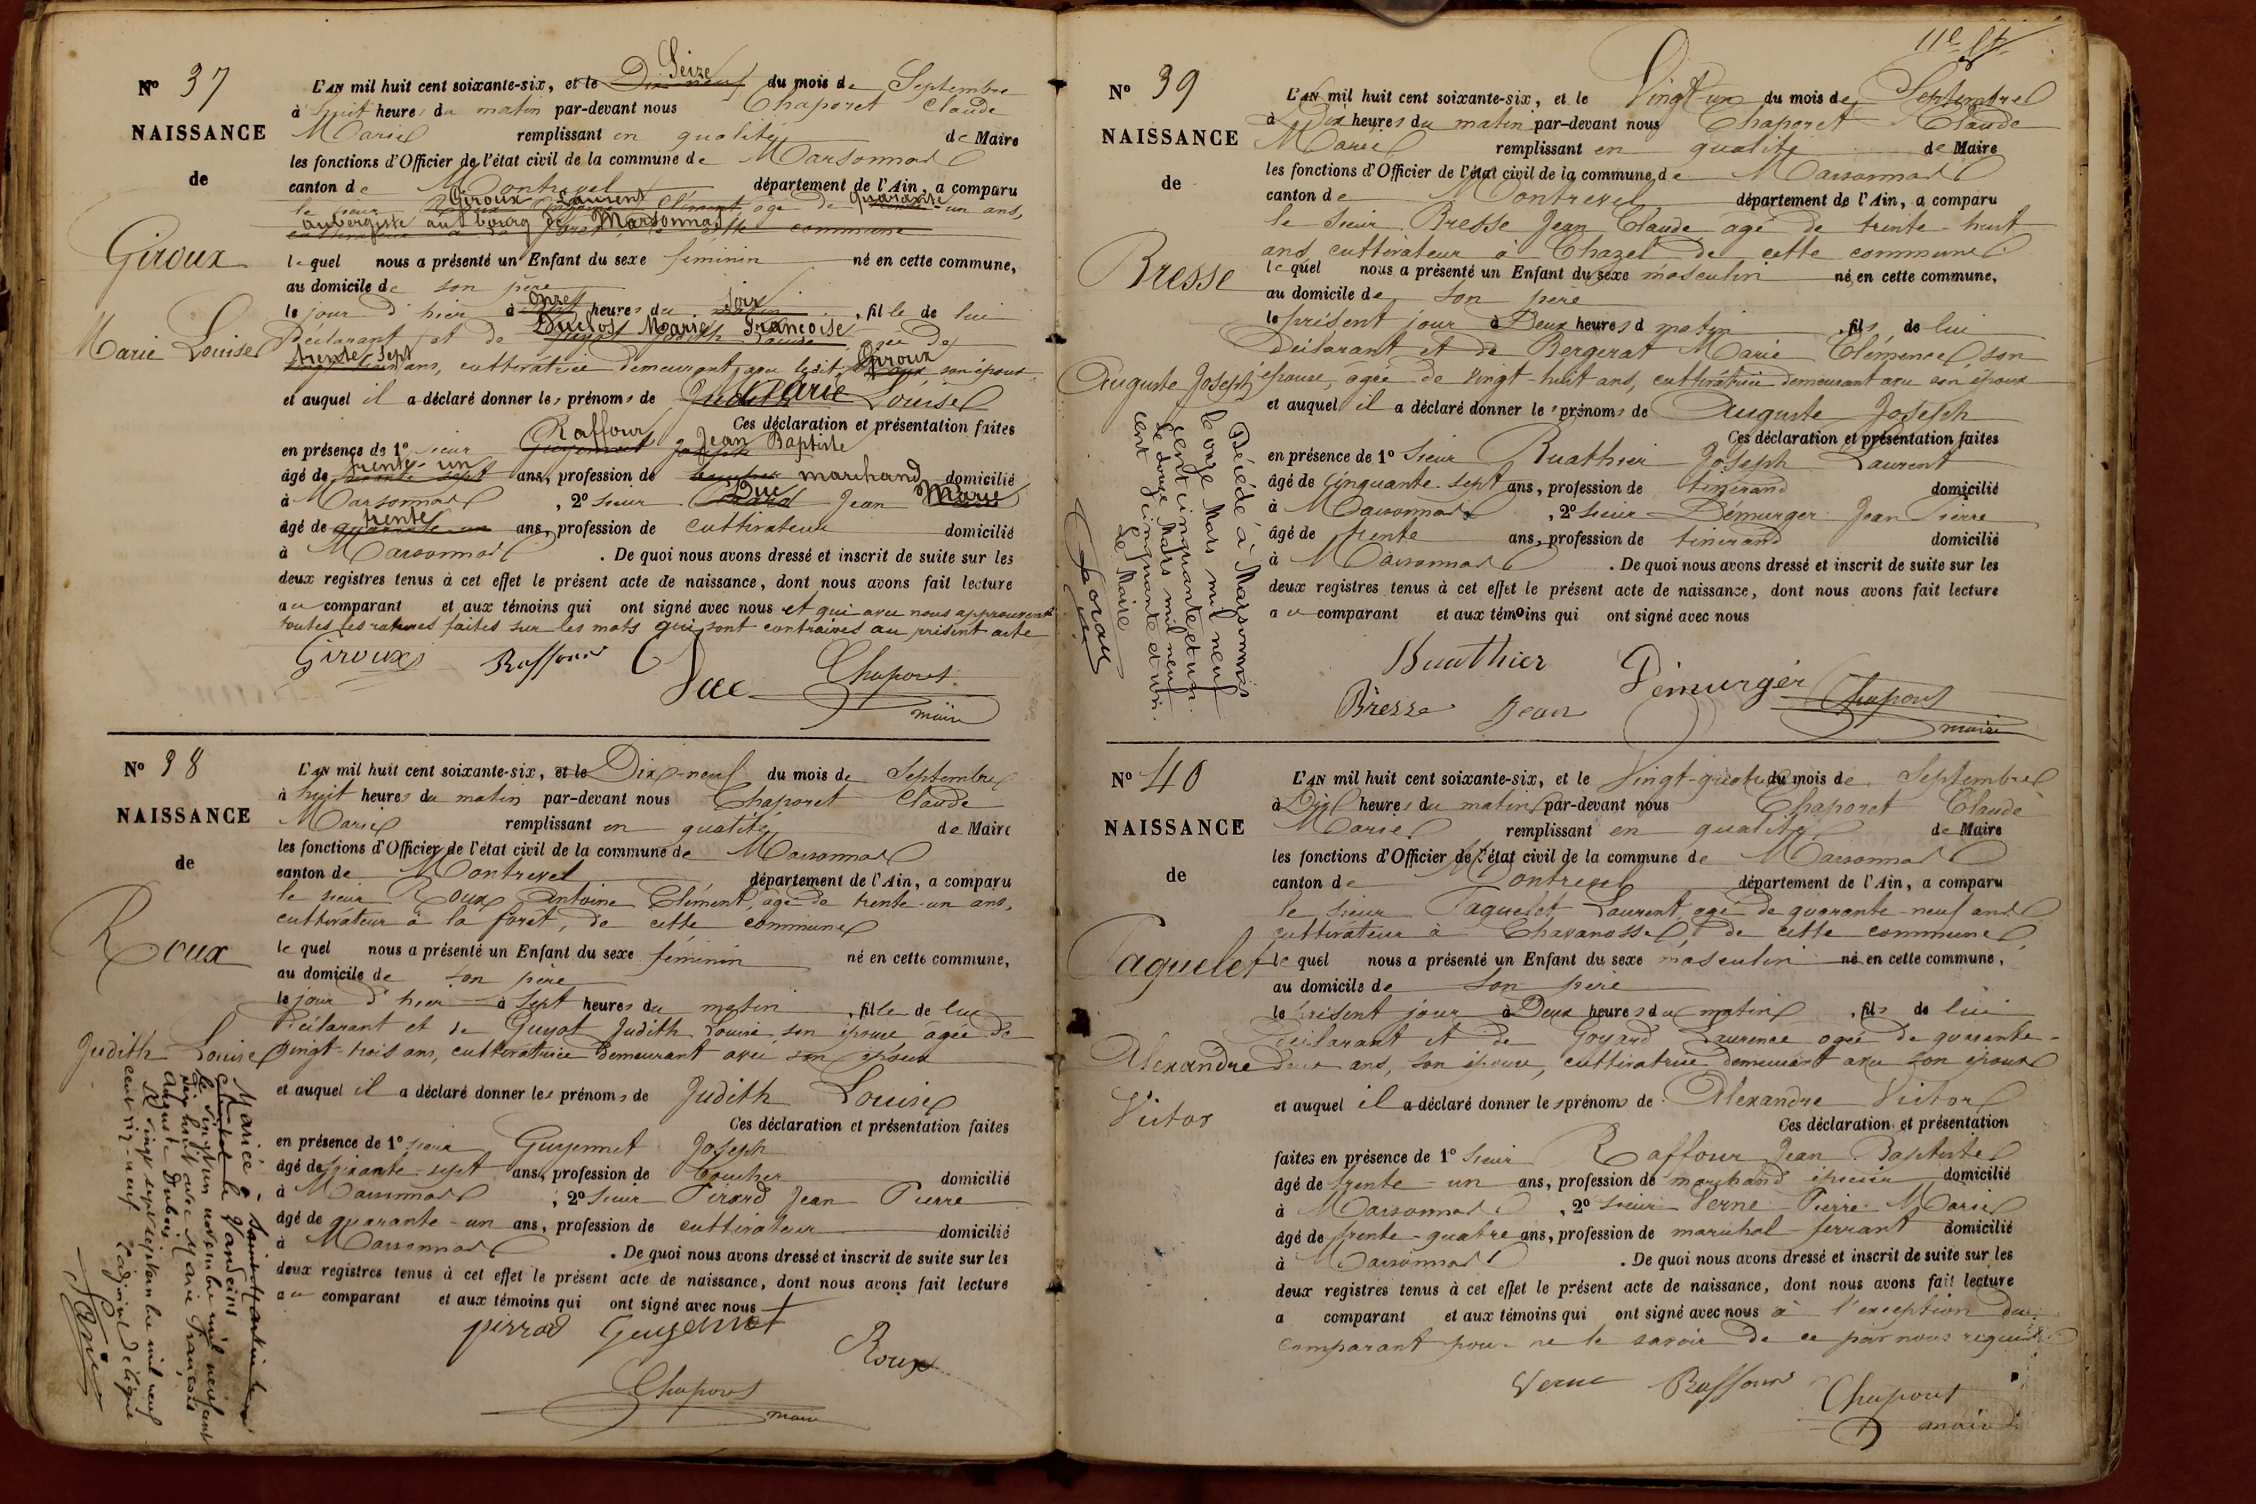 N° 37
NAISSANCE
de
Giroux
Marie Louise
Seize
L'AN mil huit cent soixante-six, et le Dix-neuf du mois de Septembre
à huit heures du matin par-devant nous Chaporet Claude
Marie remplissant en qualité de Maire
les fonctions d'Officier de l'état civil de la commune de Marsonnas
canton de Montrevel département de l'Ain, a comparu
Giroux Laurent quarante
le sieur Roux Antoine Clément agé de trente-un ans,
aubergiste au bourg de Marsonnas
cultivateur à la foret, de cette commune
lequel nous a présenté un Enfant du sexe féminin né en cette commune,
au domicile de son père
onze soir
le jour d'hier à sept heures du matin, fille de lui
Duclos Marie Françoise
Déclarant et de Guyot Judith Louise agée de
trente sept Giroux
vingt trois ans, cultivatrice demeurant avec ledit Roux son époux
Marie
et auquel il a déclaré donner les prénoms de Judith Louise
Ces déclaration et présentation faites
Raffour Jean Baptiste
en présence de 1° sieur Guyennet Joseph
trente-un
âgé de soixante sept ans, profession de boucher marchand domicilié
Duc Marie
à Marsonnas, 2° sieur Pirard Jean Pierre
trente
âgé de quarante-un ans, profession de cultivateur domicilié
à Marsonnas. De quoi nous avons dressé et inscrit de suite sur les
deux registres tenus à cet effet le présent acte de naissance, dont nous avons fait lecture
au comparant et aux témoins qui ont signé avec nous et qui avec nous approuvent
toutes les ratures faites sur les mots qui sont contraires au présent acte
Giroux Raffour Duc Chaporet
maire
N° 38
NAISSANCE
de
Roux
Judith Louise
L'AN mil huit cent soixante-six, et le Dix-neuf du mois de Septembre
à huit heures du matin par-devant nous Chaporet Claude
Marie remplissant en qualité de Maire
les fonctions d'Officier de l'état civil de la commune de Marsonnas
canton de Montrevel département de l'Ain, a comparu
le sieur Roux Antoine Clément, agé de trente-un ans,
cultivateur à la foret, de cette commune
lequel nous a présenté un Enfant du sexe féminin né en cette commune,
au domicile de son père
le jour d'hier à sept heures du matin, fille de lui
Déclarant et de Guyot Judith Louise son épouse agée de
vingt-trois ans, cultivatrice demeurant avec son époux
et auquel il a déclaré donner les prénoms de Judith Louise
Ces déclaration et présentation faites
en présence de 1° sieur Guyennet Joseph
âgé de soixante-sept ans, profession de boucher domicilié
à Marsonnas, 2° sieur Pirard Jean Pierre
âgé de quarante-un ans, profession de cultivateur domicilié
à Marsonnas. De quoi nous avons dressé et inscrit de suite sur les
deux registres tenus à cet effet le présent acte de naissance, dont nous avons fait lecture
au comparant et aux témoins qui ont signé avec nous
pirrad Guyennet
Roux
Chaporet
maire
Mariée à Saint Martin le
Chatel le Vandeins
le vingt un novembre mil neuf cent
dix huit avec Marie François
Auguste Dubois
Le vingt sept septembre mil neuf
cent dix-neuf L'adjoint délégué
11e ft
N° 39
NAISSANCE
de
Bresse
Auguste Joseph
L'AN mil huit cent soixante-six, et le Vingt-un du mois de Septembre
à Dix heures du matin par-devant nous Chaporet Claude
Marie remplissant en qualité de Maire
les fonctions d'Officier de l'état civil de la commune de Marsonnas
canton de Montrevel département de l'Ain, a comparu
le sieur Bresse Jean Claude agé de trente-huit
ans cultivateur à Chazel de cette commune
lequel nous a présenté un Enfant du sexe masculin né en cette commune,
au domicile de son père
le présent jour à Deux heures d matin, fils de lui
Déclarant et de Bergerat Marie Clémence son
épouse, agée de vingt-huit ans, cultivatrice demeurant avec son époux
et auquel il a déclaré donner les prénoms de Auguste Joseph
Ces déclaration et présentation faites
en présence de 1° sieur Ruathier Joseph Laurent
âgé de cinquante-sept ans, profession de tisserand domicilié
à Marsonnas, 2° sieur Démurger Jean Pierre
âgé de trente ans, profession de tisserand domicilié
à Marsonnas. De quoi nous avons dressé et inscrit de suite sur les
deux registres tenus à cet effet le présent acte de naissance, dont nous avons fait lecture
au comparant et aux témoins qui ont signé avec nous
Ruathier Démurger
Bresse Jean Chaporet
maire
Décédé à Marsonnas
le onze Mars mil neuf
cent cinquante et un.
Le douze Mars mil neuf
cent cinquante et un.
Le Maire
N° 40
NAISSANCE
de
Paquelet
Alexandre
Victor
L'AN mil huit cent soixante-six, et le Vingt-quatre du mois de Septembre
à Dix heures du matin par-devant nous Chaporet Claude
Marie remplissant en qualité de Maire
les fonctions d'Officier de l'état civil de la commune de Marsonnas
canton de Montrevel département de l'Ain, a comparu
le sieur Paquelet Laurent agé de quarante-neuf ans
cultivateur à Chavanosse, de cette commune
lequel nous a présenté un Enfant du sexe masculin né en cette commune,
au domicile de son père
le présent jour à Deux heures du matin, fils de lui
Déclarant et de Goyard Laurence agée de quarante-
deux ans, son épouse, cultivatrice demeurant avec son époux
et auquel il a déclaré donner les prénoms de Alexandre Victor
Ces déclaration et présentation
faites en présence de 1° sieur Raffour Jean Baptiste
âgé de trente-un ans, profession de marchand épicier domicilié
à Marsonnas, 2° sieur Verne Pierre Marie
âgé de trente-quatre ans, profession de maréchal-ferrant domicilié
à Marsonnas. De quoi nous avons dressé et inscrit de suite sur les
deux registres tenus à cet effet le présent acte de naissance, dont nous avons fait lecture
a comparant et aux témoins qui ont signé avec nous à l'exception du
comparant pour ne le savoir de ce par nous requis
Verne Raffour Chaporet
maire